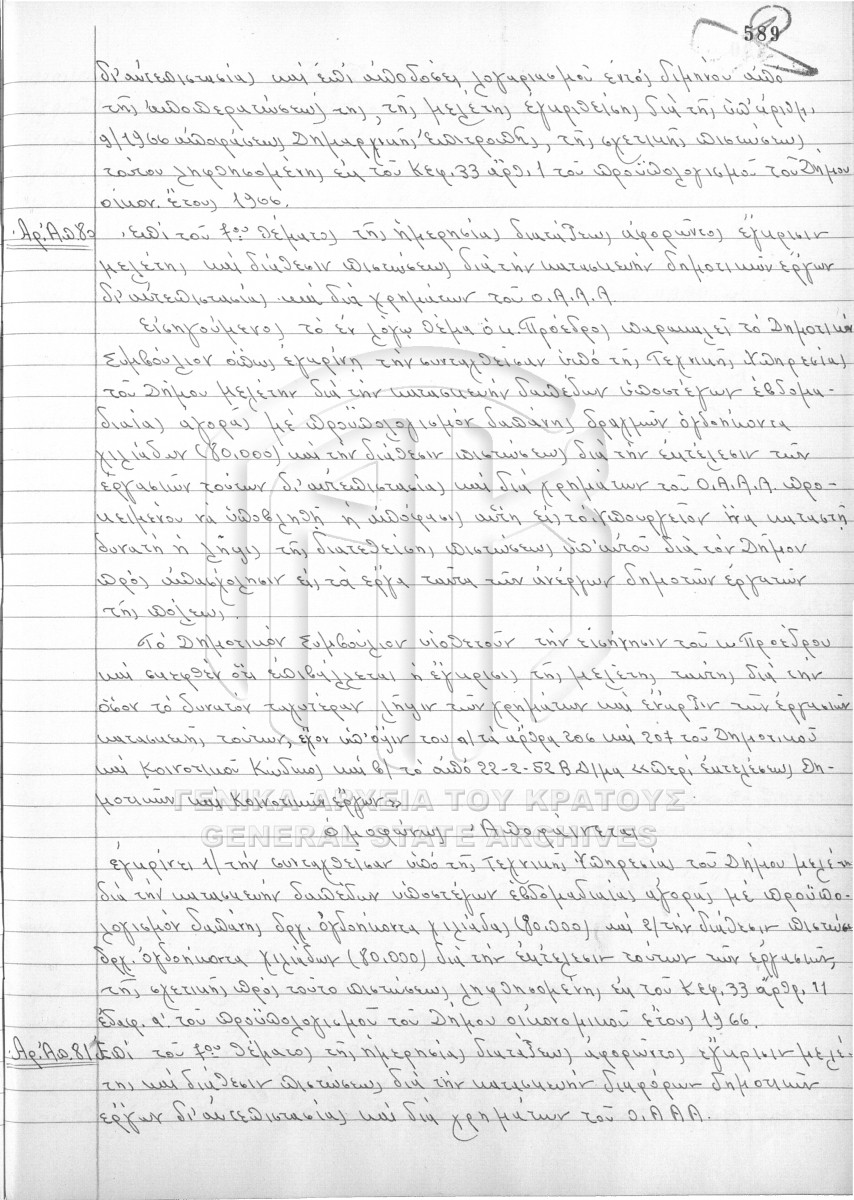 589
δι' αὐτεπιστασίας καί ἐπί ἀποδόσει λογαριασμοῦ ἐντός διμήνου ἀπό
τῆς ἀποπερατώσεώς της, τῆς μελέτης ἐγκριθείσης διά τῆς ὑπ' ἀριθμ.
9/1966 ἀποφάσεως Δημαρχιακῆς Ἐπιτροπῆς, τῆς σχετικῆς πιστώσεως
τούτου ληφθησομένης ἐκ τοῦ Κεφ. 33 ἄρθ. 1 τοῦ προϋπολογισμοῦ τοῦ Δήμου
οἰκον. ἔτους 1966.
Αρ. Απ. 80 Ἐπί τοῦ 1ου θέματος τῆς ἡμερησίας διατάξεως ἀφορῶντος ἔγκρισιν
μελέτης καί διάθεσιν πιστώσεως διά τήν κατασκευήν δημοτικῶν ἔργων
δι' αὐτεπιστασίας καί διά χρημάτων τοῦ Ο.Α.Α.Α.
Εἰσηγούμενος τό ἐν λόγῳ θέμα ὁ κ. Πρόεδρος παρακαλεῖ τό Δημοτικόν
Συμβούλιον ὅπως ἐγκρίνῃ τήν συνταχθεῖσαν ὑπό τῆς Τεχνικῆς Ὑπηρεσίας
τοῦ Δήμου μελέτην διά τήν κατασκευήν δαπέδων ὑποστέγων ἑβδομα-
διαίας ἀγορᾶς μέ προϋπολογισμόν δαπάνης δραχμῶν ὀγδοήκοντα
χιλιάδων (80.000) καί τήν διάθεσιν πιστώσεως διά τήν ἐκτέλεσιν τῶν
ἐργασιῶν τούτων δι' αὐτεπιστασίας καί διά χρημάτων τοῦ Ο.Α.Α.Α. προ-
κειμένου νά ὑποβληθῇ ἡ ἀπόφασις αὕτη εἰς τό Ὑπουργεῖον ἵνα καταστῇ
δυνατή ἡ λῆψις τῆς διατεθείσης πιστώσεως ὑπ' αὐτοῦ διά τόν Δῆμον
πρός ἀπασχόλησιν εἰς τά ἔργα ταῦτα τῶν ἀνέργων δημοτῶν ἐργατῶν
τῆς πόλεως.
Τό Δημοτικόν Συμβούλιον υἱοθετοῦν τήν εἰσήγησιν τοῦ κ. Προέδρου
καί σκεφθέν ὅτι ἐπιβάλλεται ἡ ἔγκρισις τῆς μελέτης ταύτης διά τήν
ὅσον τό δυνατόν ταχυτέραν λῆψιν τῶν χρημάτων καί ἔναρξιν τῶν ἐργασιῶν
κατασκευῆς τούτων, ἔχον ὑπ' ὄψιν του α/ τά ἄρθρα 206 καί 207 τοῦ Δημοτικοῦ
καί Κοινοτικοῦ Κώδικος καί β/ τό ἀπό 22-2-52 Β.Δ/μα «περί ἐκτελέσεως Δη-
μοτικῶν καί Κοινοτικῶν ἔργων»
ΓΕΝΙΚΑ ΑΡΧΕΙΑ ΤΟΥ ΚΡΑΤΟΥΣ
GENERAL STATE ARCHIVES
Ὁμοφώνως Ἀποφαίνεται
ἐγκρίνει 1/ τήν συνταχθεῖσαν ὑπό τῆς Τεχνικῆς Ὑπηρεσίας τοῦ Δήμου μελέτην
διά τήν κατασκευήν δαπέδων ὑποστέγων ἑβδομαδιαίας ἀγορᾶς μέ προϋπο-
λογισμόν δαπάνης δρχ. ὀγδοήκοντα χιλιάδας (80.000) καί 2/ τήν διάθεσιν πιστώσεως
δρχ. ὀγδοήκοντα χιλιάδων (80.000) διά τήν ἐκτέλεσιν τούτων τῶν ἐργασιῶν,
τῆς σχετικῆς πρός τοῦτο πιστώσεως ληφθησομένης ἐκ τοῦ Κεφ. 33 ἄρθρ. 11
ἐδαφ. α' τοῦ προϋπολογισμοῦ τοῦ Δήμου οἰκονομικοῦ ἔτους 1966.
Αρ. Απ. 81 Ἐπί τοῦ 1ου θέματος τῆς ἡμερησίας διατάξεως ἀφορῶντος ἔγκρισιν μελέ-
της καί διάθεσιν πιστώσεως διά τήν κατασκευήν διαφόρων δημοτικῶν
ἔργων δι' αὐτεπιστασίας καί διά χρημάτων τοῦ Ο.Α.Α.Α.